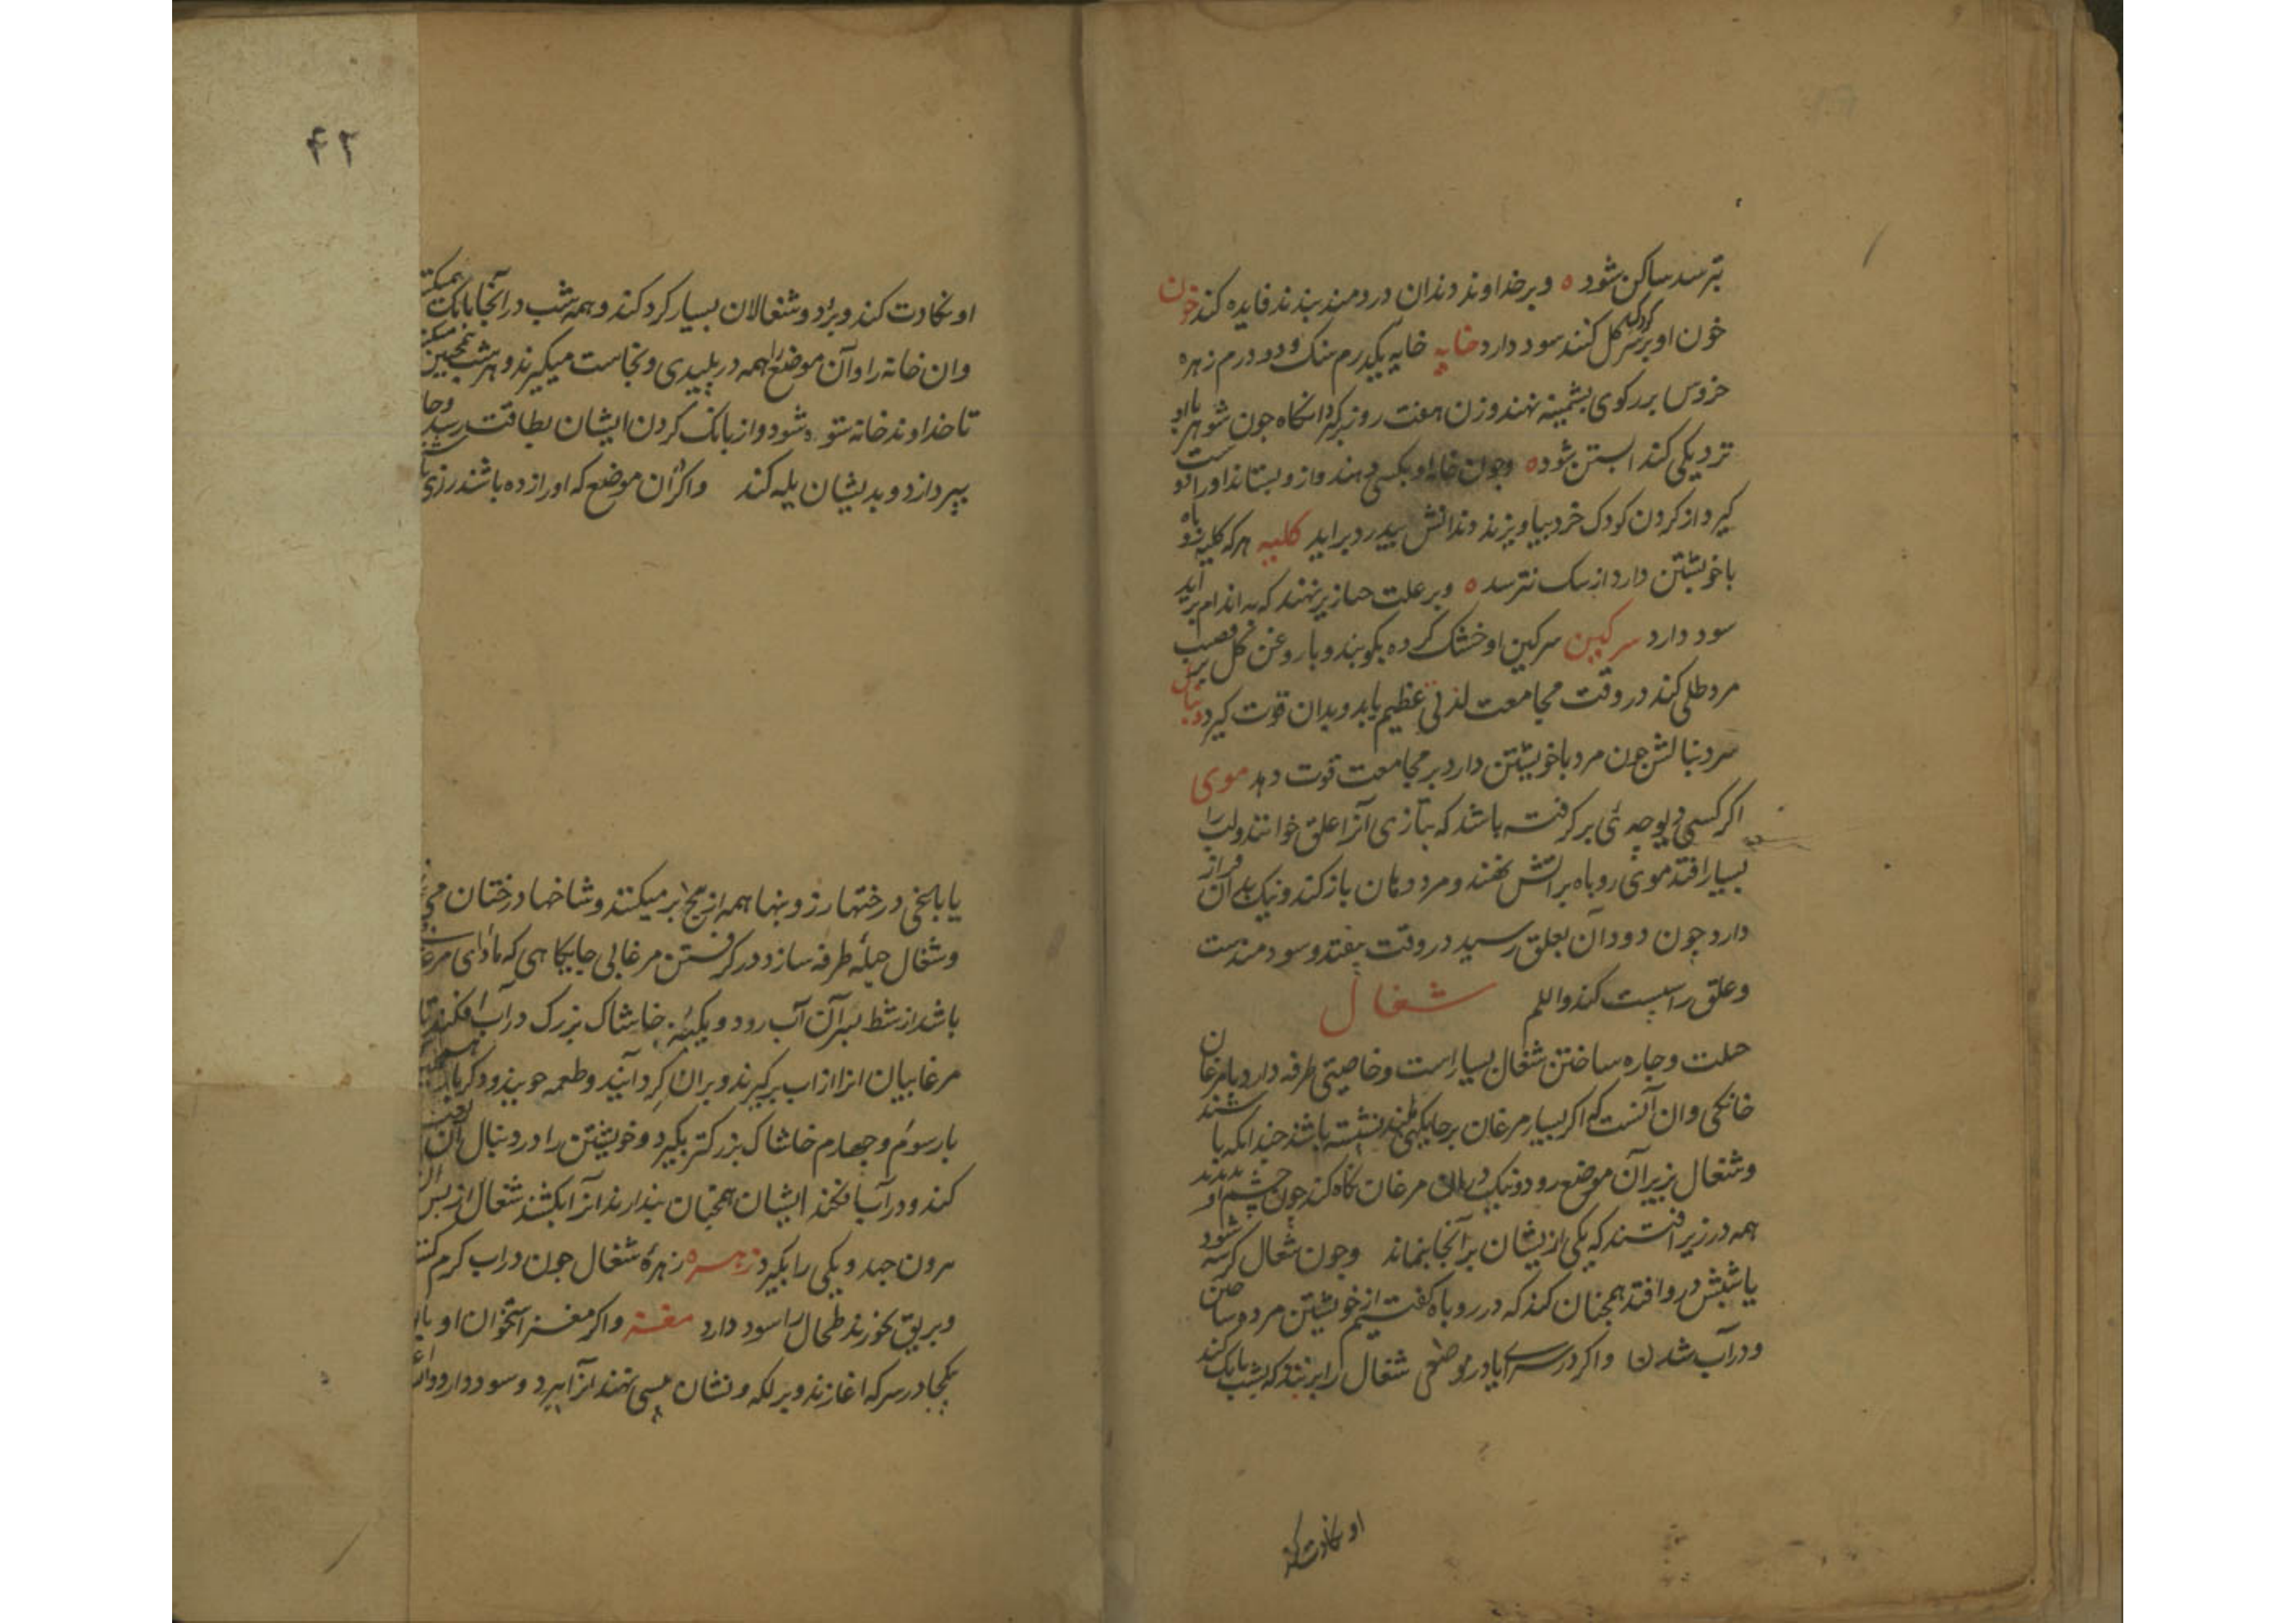 بترسد ساکن شود ه وبر خداوند دندان دردمند بندند فایده کند خون
خون او بر سر کودک کل کنند سود دارد خایه خایه یکدرم سنک ودو درم زهره
خروس بر رکوی بشمینه نهند وزن هفت روز برکیرد انکاه جون شوهر با او
نزدیکی کند ابستن شود ه وجون خایه او بکسی دهند واز و بستاند اورا
کیرد از کردن کودک خرد بیاویزند دندانش بیدرد براید کلیه هرکه کلیه روباه
باخویشتن دارد از سک نترسد ه وبر علت خنازیر نهند که به اندام براید
سود دارد سرکین سرکین او خشک کرده بکوبند وبا روغن کل بر قضیب
مرد طلی کند در وقت مجامعت لذتی عظیم یابد وبدان قوت کیرد دنبال
سر دنبالش جون مرد باخویشتن دارد بر مجامعت قوت دهد موی
اکر کسی دیوچه ئی بر کرفته باشد که بتازی آنرا علق خوانند ولب را
بسیار افتد موی روباه بر اتش نهند ومرد دهان باز کند ونیک بر آن فراز
دارد جون دود آن بعلق رسید در وقت بیفتد وسودمندست
وعلق را سست کند
شغال
حیلت وجاره ساختن شغال بسیار است وخاصیتی طرفه دارد با مرغان
خانکی وان آنست که اکر بسیار مرغان بر جایکهی بلند نشسته باشند جندانکه با شند
وشغال بزیر آن موضع رود ونیک در ان مرغان نکاه کند جون چشم او بدیدند
همه در زیر افتند که یکی از یشان بر آنجا بنماند وجون شغال کرسنه شود
یا شبش درو افتد همچنان کند که در روباه کفتیم از خویشتن مرده ساختن
ودر آب شدن واکر در سرای یا در موضعی شغال را بزنند که بشب بانک کند
او نکادت کند
۴۲
او نکادت کند وبرد وشغالان بسیار کرد کند وهمه شب در آنجا بانک همیکنند
وان خانه را وآن موضع را همه در بلیدی ونجاست میکیرند وهرشب همچنین میکنند
تا خداوند خانه ستوه شود واز بانک کردن ایشان بطاقت رسد وجا
بپردازد وبدیشان یله کند واکر آن موضع که اورا زده باشند رزی
یا باغی درختها رز وبنها همه از بیخ بر میکنند وشاخها درختان
وشغال حیلهٔ طرفه سازد در کرفتن مرغابی جایکاهی که مأوای مرغابی
باشد از شط بسر آن آب رود ویکبته خاشاک بزرک در آب افکند تا
مرغابیان انرا از اب برکیرند وبران کرد آیند وطعمه جویند ودکر بار
بار سوم وچهارم خاشاک بزرکتر بکیرد وخویشتن را در دنبال آن
کند ودر آب افکند ایشان همچنان بندارند انرا بکشند شغال از بس
برون جهد ویکی را بکیرد زهره زهرهٔ شغال جون در اب کرم کنند
وبریق بخورند طحال را سود دارد مغز واکر مغز استخوان او با
یکجا در سرکه اغارند وبر لکه ونشان بیسی نهند آنرا ببرد وسود دارد